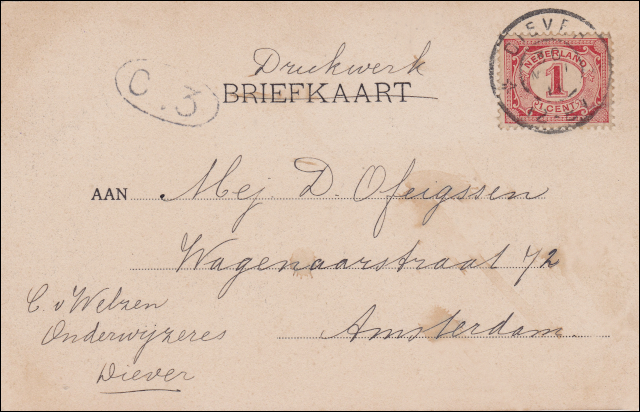 DIEVE
NEDERLAND
1
1 CENT
Drukwerk
BRIEFKAART
C.3
AAN Mej. D. Ofeigssen
Wagenaarstraat 72
Amsterdam.
C. v Welzen
Onderwijzeres
Diever